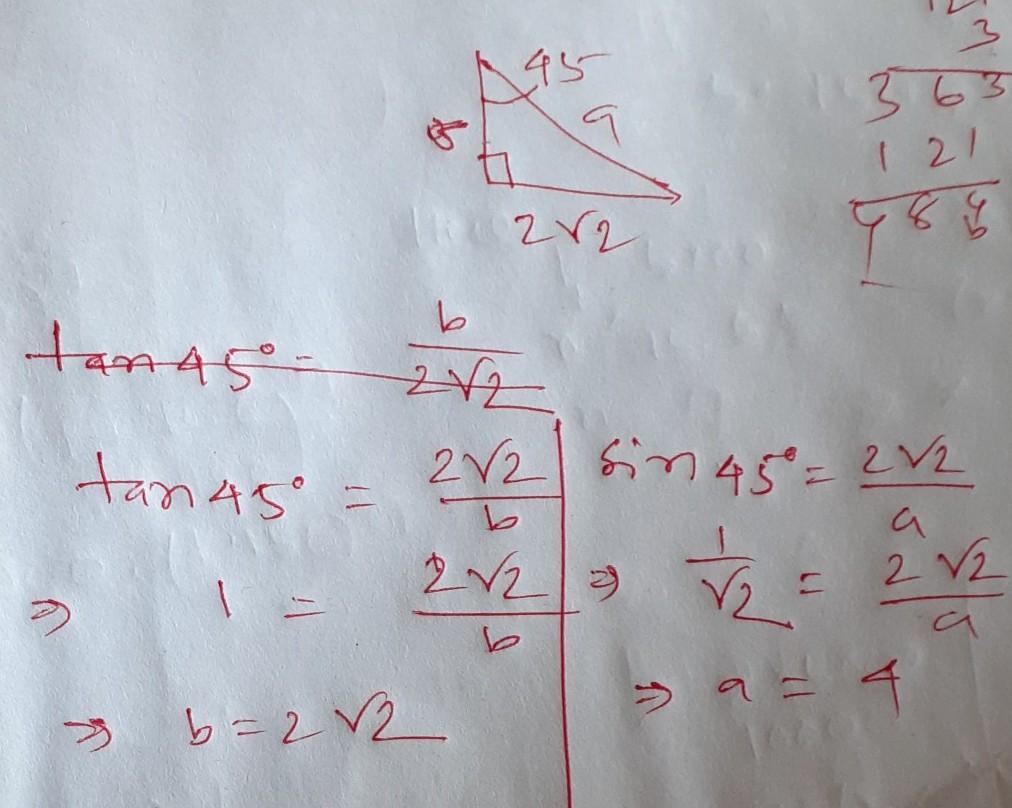 45
a
b
2√2
3
3 6 3
1 2 1
4 8 4
tan 45° = b/2√2
tan 45° = 2√2/b
⇒ 1 = 2√2/b
⇒ b = 2√2
sin 45° = 2√2/a
⇒ 1/√2 = 2√2/a
⇒ a = 4